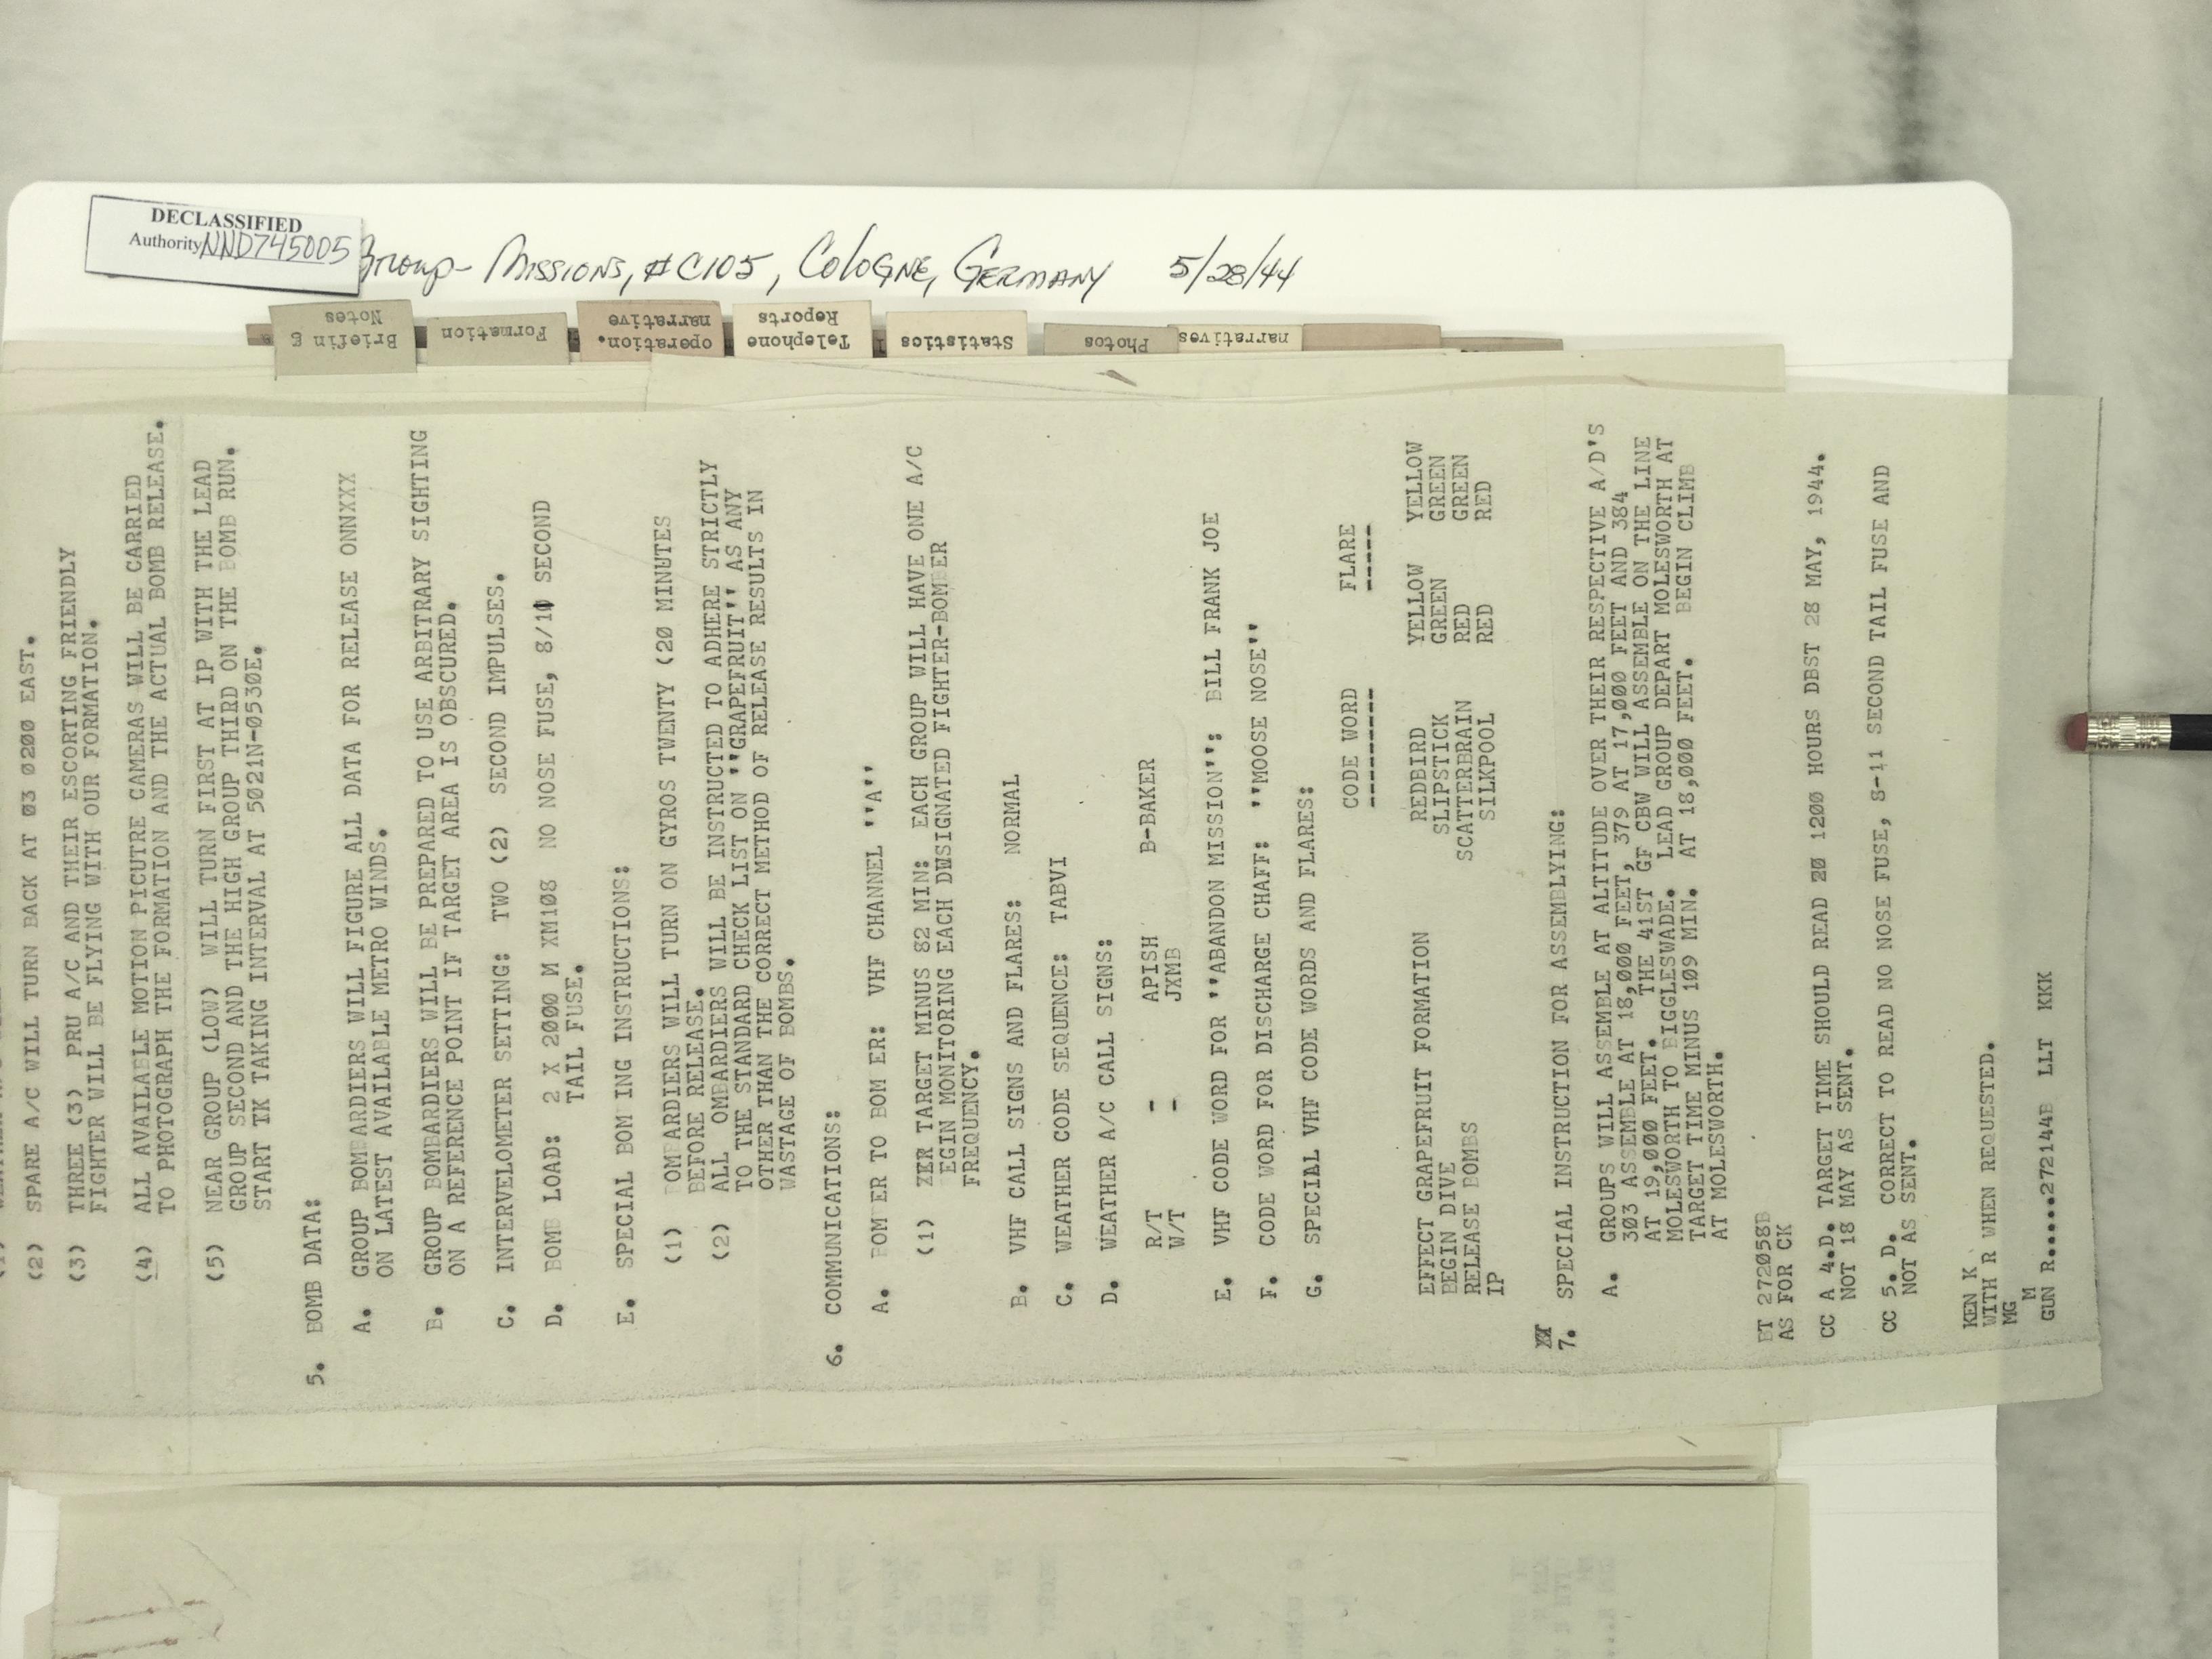 DECLASSIFIED
Authority NND745005
Group - Missions, #C105, Cologne, Germany 5/28/44
Briefing
Notes
Formation
operation.
narrative
Telephone
Reports
Statistics
Photos
narratives
(2) SPARE A/C WILL TURN BACK AT 03 0200 EAST.
(3) THREE (3) PRU A/C AND THEIR ESCORTING FRIENDLY
FIGHTER WILL BE FLYING WITH OUR FORMATION.
(4) ALL AVAILABLE MOTION PICUTRE CAMERAS WILL BE CARRIED
TO PHOTOGRAPH THE FORMATION AND THE ACTUAL BOMB RELEASE.
(5) NEAR GROUP (LOW) WILL TURN FIRST AT IP WITH THE LEAD
GROUP SECOND AND THE HIGH GROUP THIRD ON THE BOMB RUN.
START TK TAKING INTERVAL AT 5021N-0530E.
5. BOMB DATA:
A. GROUP BOMBARDIERS WILL FIGURE ALL DATA FOR RELEASE ONNXXX
ON LATEST AVAILABLE METRO WINDS.
B. GROUP BOMBARDIERS WILL BE PREPARED TO USE ARBITRARY SIGHTING
ON A REFERENCE POINT IF TARGET AREA IS OBSCURED.
C. INTERVELOMETER SETTING: TWO (2) SECOND IMPULSES.
D. BOMB LOAD: 2 X 2000 M XM108 NO NOSE FUSE, 8/11 SECOND
TAIL FUSE.
E. SPECIAL BOM ING INSTRUCTIONS:
(1) BOMBARDIERS WILL TURN ON GYROS TWENTY (20 MINUTES
BEFORE RELEASE.
(2) ALL BOMBARDIERS WILL BE INSTRUCTED TO ADHERE STRICTLY
TO THE STANDARD CHECK LIST ON ''GRAPEFRUIT'' AS ANY
OTHER THAN THE CORRECT METHOD OF RELEASE RESULTS IN
WASTAGE OF BOMBS.
6. COMMUNICATIONS:
A. BOMBER TO BOMBER: VHF CHANNEL ''A''
(1) ZER TARGET MINUS 82 MIN: EACH GROUP WILL HAVE ONE A/C
BEGIN MONITORING EACH DWSIGNATED FIGHTER-BOMBER
FREQUENCY.
B. VHF CALL SIGNS AND FLARES: NORMAL
C. WEATHER CODE SEQUENCE: TABVI
D. WEATHER A/C CALL SIGNS:
R/T - APISH B-BAKER
W/T - JXMB
E. VHF CODE WORD FOR ''ABANDON MISSION'': BILL FRANK JOE
F. CODE WORD FOR DISCHARGE CHAFF: ''MOOSE NOSE''
G. SPECIAL VHF CODE WORDS AND FLARES:
CODE WORD FLARE
--------- -----
EFFECT GRAPEFRUIT FORMATION REDBIRD YELLOW YELLOW
BEGIN DIVE SLIPSTICK GREEN GREEN
RELEASE BOMBS SCATTERBRAIN RED GREEN
IP SILKPOOL RED RED
7. SPECIAL INSTRUCTION FOR ASSEMBLYING:
A. GROUPS WILL ASSEMBLE AT ALTITUDE OVER THEIR RESPECTIVE A/D'S
303 ASSEMBLE AT 18,000 FEET, 379 AT 17,000 FEET AND 384
AT 19,000 FEET. THE 41ST GF CBW WILL ASSEMBLE ON THE LINE
MOLESWORTH TO BIGGLESWADE. LEAD GROUP DEPART MOLESWORTH AT
TARGET TIME MINUS 109 MIN. AT 18,000 FEET. BEGIN CLIMB
AT MOLESWORTH.
BT 272058B
AS FOR CK
CC A 4.D. TARGET TIME SHOULD READ 20 1200 HOURS DBST 28 MAY, 1944.
NOT 18 MAY AS SENT.
CC 5. D. CORRECT TO READ NO NOSE FUSE, 8-11 SECOND TAIL FUSE AND
NOT AS SENT.
KEN K
WITH R WHEN REQUESTED.
MG M
GUN R.....272144B LLT KKK